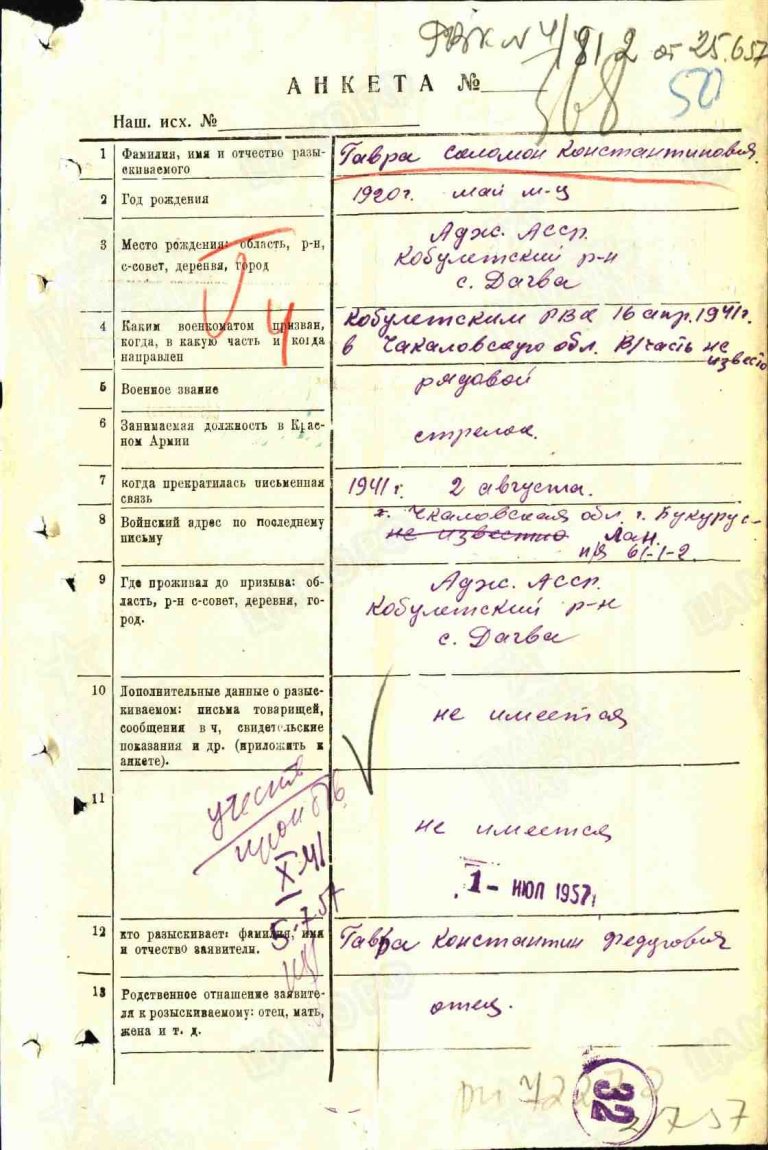 РВК № 4/812 от 25.6.57
568
50
АНКЕТА №
Наш. исх. №
1 Фамилия, имя и отчество разы-
скиваемого
Гавра Соломон Константинович.
2 Год рождения
1920 г. май м-ц
3 Место рождения: область, р-н,
с-совет, деренвя, город
Адж. Асср.
Кобулетский р-н
с. Дагва
Г
4
4 Каким военкоматом призван,
когда, в какую часть и когда
направлен
Кобулетским РВК 16 апр. 1941 г.
в Чкаловскую обл. В/часть не
известно
5 Военное звание
рядовой
6 Занимаемая должность в Крас-
ном Армии
стрелок.
7 когда прекратилась письменная
связь
1941 г. 2 августа.
8 Войинский адрес по последнему
письму
г. Чкаловская обл. г. Букурус-
не известно
лан.
п/я 61-1-2.
9 Где проживал до призыва: об-
ласть, р-н с-совет, деревня, го-
род.
Адж. Асср.
Кобулетский р-н
с. Дагва
10 Дополнительные данные о разыс-
киваемом: письма товарищей,
сообщения в ч, свидетельские
показания и др. (приложить к
анкете).
не имеется
11
не имеется
учесть
X 41
5.7.57
1 - ИЮЛ 1957
12 кто разыскивает: фамилия, имя
и отчество заявителя.
Гавра Константин Федугович
13 Родственное отнашение заявите-
ля к розыскиваемому: отец, мать,
жена и т. д.
отец.
32